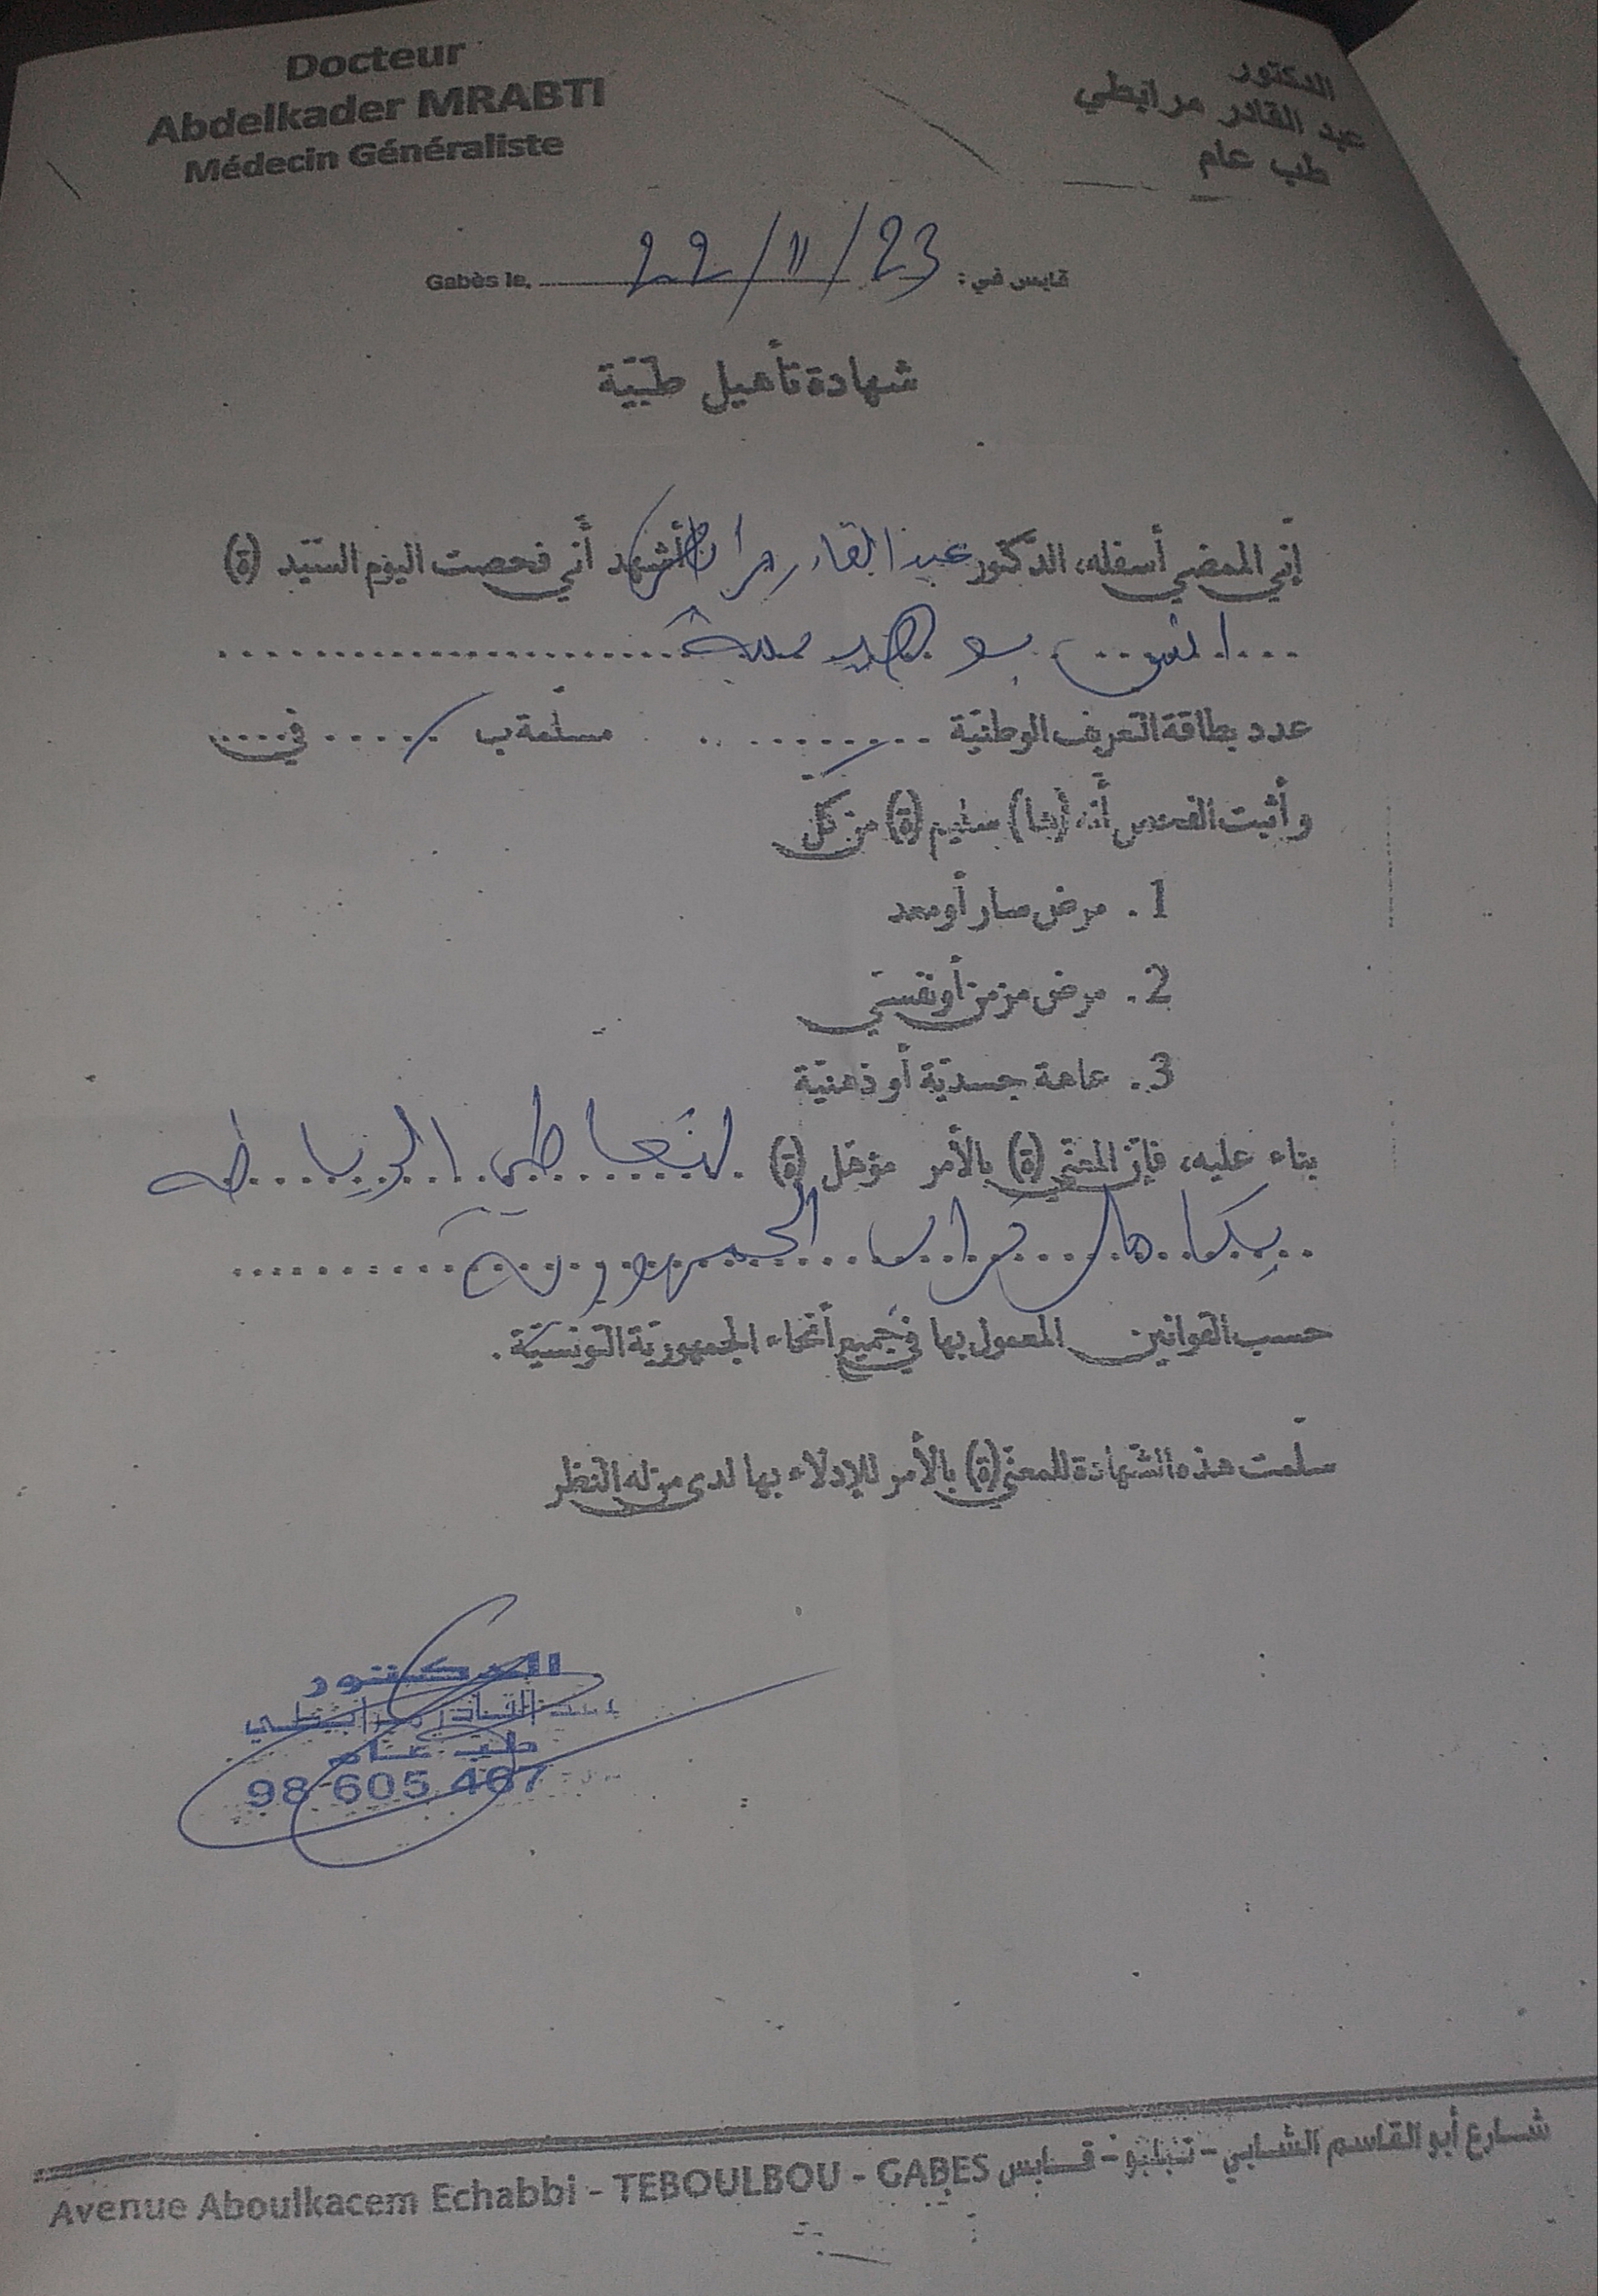 Docteur
Abdelkader MRABTI
Médecin Généraliste
الدكتور
عبد القادر مرابطي
طب عام
Gabès le, 22/11/23 قابس في :
شهادة تأهيل طبيّة
إنّي الممضي أسفله، الدّكتور عبد القادر مرابطي أشهد أنّي فحصت اليوم السّيّد (ة)
عدد بطاقة التّعريف الوطنيّة ........... مسلّمة ب ...... في .....
وأثبت الفحص أنّه (ها) سليم (ة) من كلّ
1. مرض سار أو معد
2. مرض مزمن أو نفسيّ
3. عاهة جسديّة أو ذهنيّة
بناء عليه، فإنّ المعنّي (ة) بالأمر مؤهّل (ة) لتعاطي الرياضة
بكامل تراب الجمهورية
حسب القوانين المعمول بها في جميع أنحاء الجمهوريّة التّونسيّة.
سلّمت هذه الشّهادة للمعنّي (ة) بالأمر للإدلاء بها لدى من له النّظر
الدكتور
عبد القادر مرابطي
طب عام
98 605 467
شارع أبو القاسم الشابي - تبلبو - قابس
Avenue Aboulkacem Echabbi - TEBOULBOU - GABES